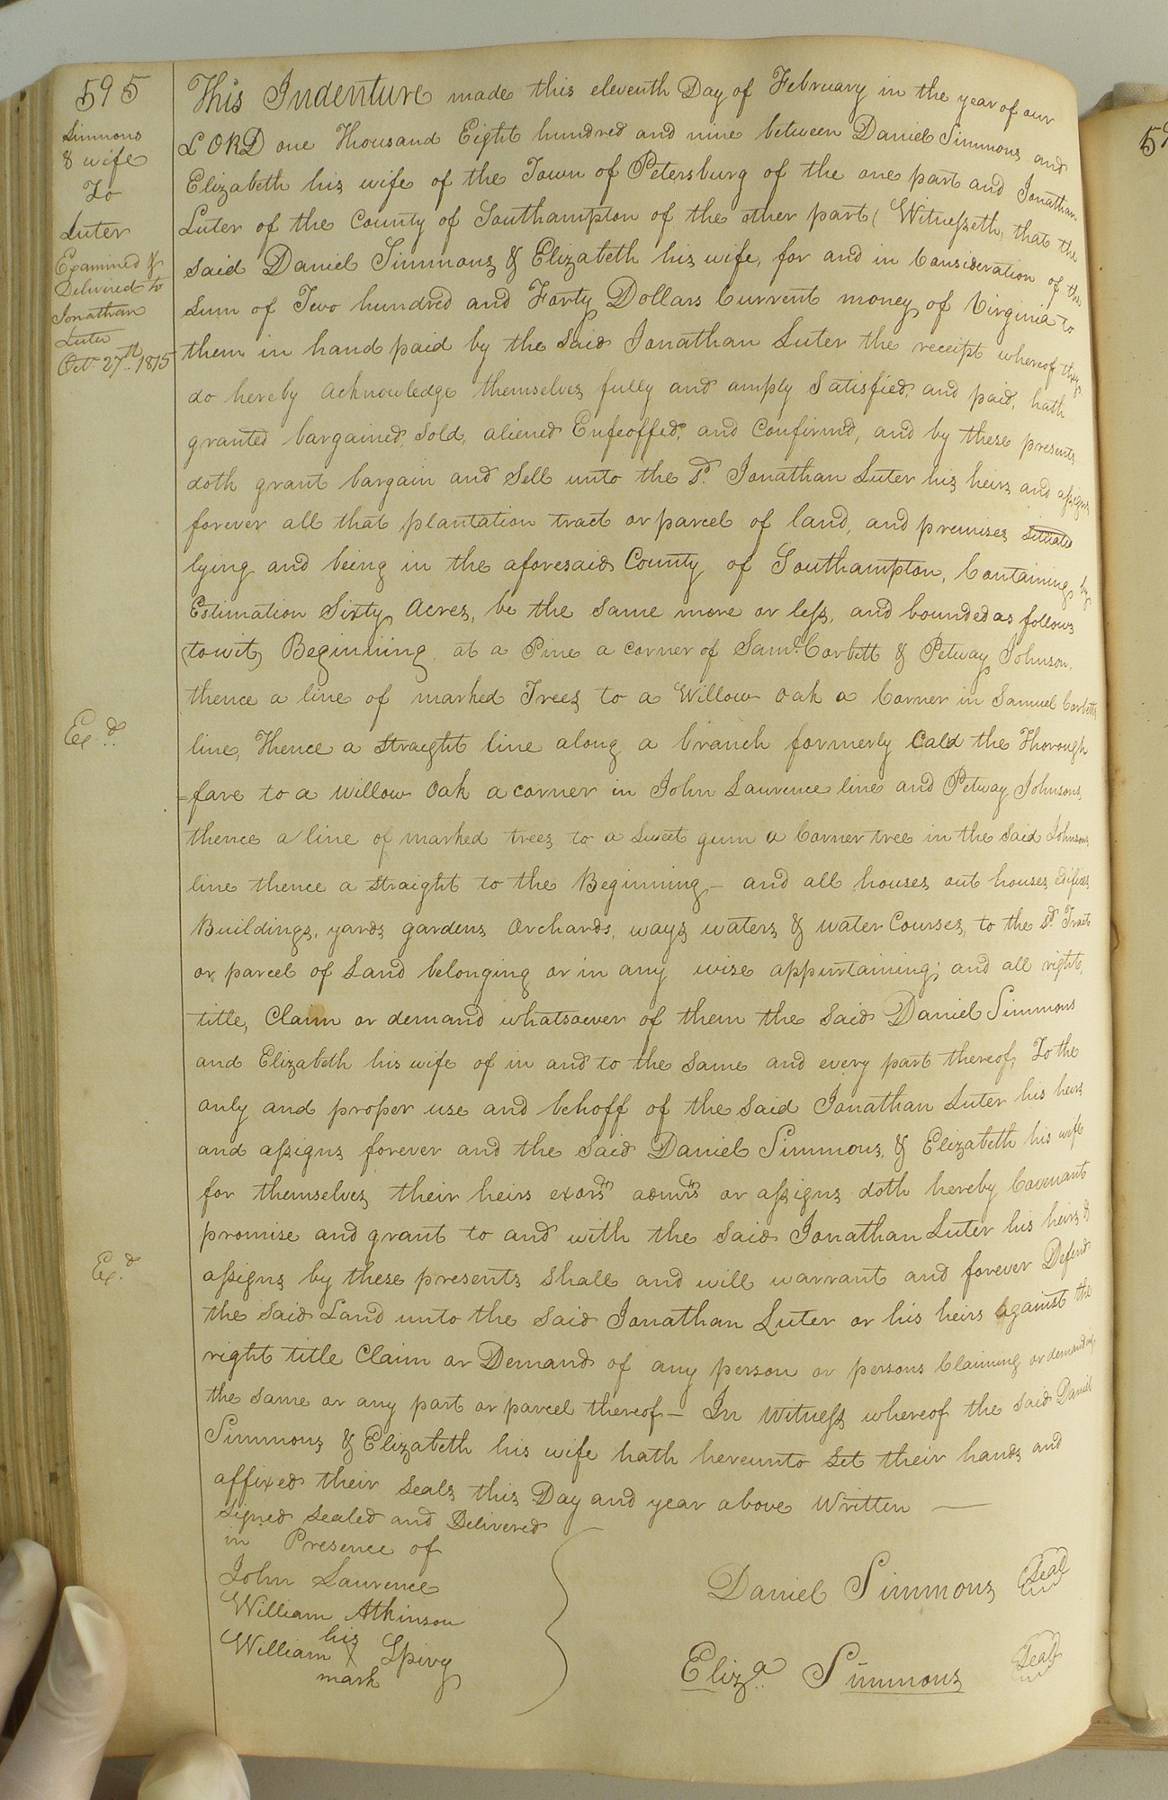 595
Simmons
& wife
To
Luter
Examined &
Delivered to
Jonathan
Luter
Octr 27th 1815
This Indenture made this eleventh Day of February in the year of our
LORD one Thousand Eight hundred and nine between Daniel Simmons and
Elizabeth his wife of the Town of Petersburg of the one part and Jonathan
Luter of the County of Southampton of the other part (Witnesseth, that the
said Daniel Simmons & Elizabeth his wife, for and in Consideration of the
sum of Two hundred and Forty Dollars Current money of Virginia to
them in hand paid by the said Jonathan Luter the receipt whereof they
do hereby acknowledge themselves fully and amply satisfied, and paid, hath
granted bargained, sold, aliened Enfeoffed, and Confirmd, and by these presents
doth grant bargain and Sell unto the sd. Jonathan Luter his heirs and assigns
forever all that plantation tract or parcel of land, and premises situate
lying and being in the aforesaid County of Southampton, Containing by
Estimation Sixty Acres, be the same more or less, and bounded as follows
(towit) Beginning at a Pine a corner of Saml. Corbett & Petway Johnson.
thence a line of marked Trees to a Willow oak a Corner in Samuel Corbetts
Exd.
line, Thence a straight line along a branch formerly Cald the Thorough
=fare to a Willow Oak a corner in John Laurence line and Petway Johnsons
thence a line of marked trees to a Sweet gum a Corner tree in the said Johnsons
line thence a straight to the Beginning — and all houses out houses edifices
Buildings, yards gardens Orchards, ways waters & water Courses, to the sd. Tract
or parcel of Land belonging or in any wise appurtaining; and all right,
title, Claim or demand whatsoever of them the said Daniel Simmons
and Elizabeth his wife of in and to the same and every part thereof, To the
only and proper use and behoff of the said Jonathan Luter his heirs
and assigns forever and the said Daniel Simmons, & Elizabeth his wife
for themselves their heirs exors admrs or assigns doth hereby Covenant
promise and grant to and with the said Jonathan Luter his heirs &
Exd.
assigns by these presents shall and will warrant and forever Defend
the said Land unto the said Jonathan Luter or his heirs against the
right title Claim or Demand of any person or persons Claiming or demanding
the same or any part or parcel thereof — In Witness whereof the said Daniel
Simmons & Elizabeth his wife hath hereunto set their hands and
affixed their seals this Day and year above Written —
Signed Sealed and Delivered
in Presence of
John Laurence
William Atkinson
his
William X Spivy
mark
Daniel Simmons Seal
Eliza. Simmons Seal